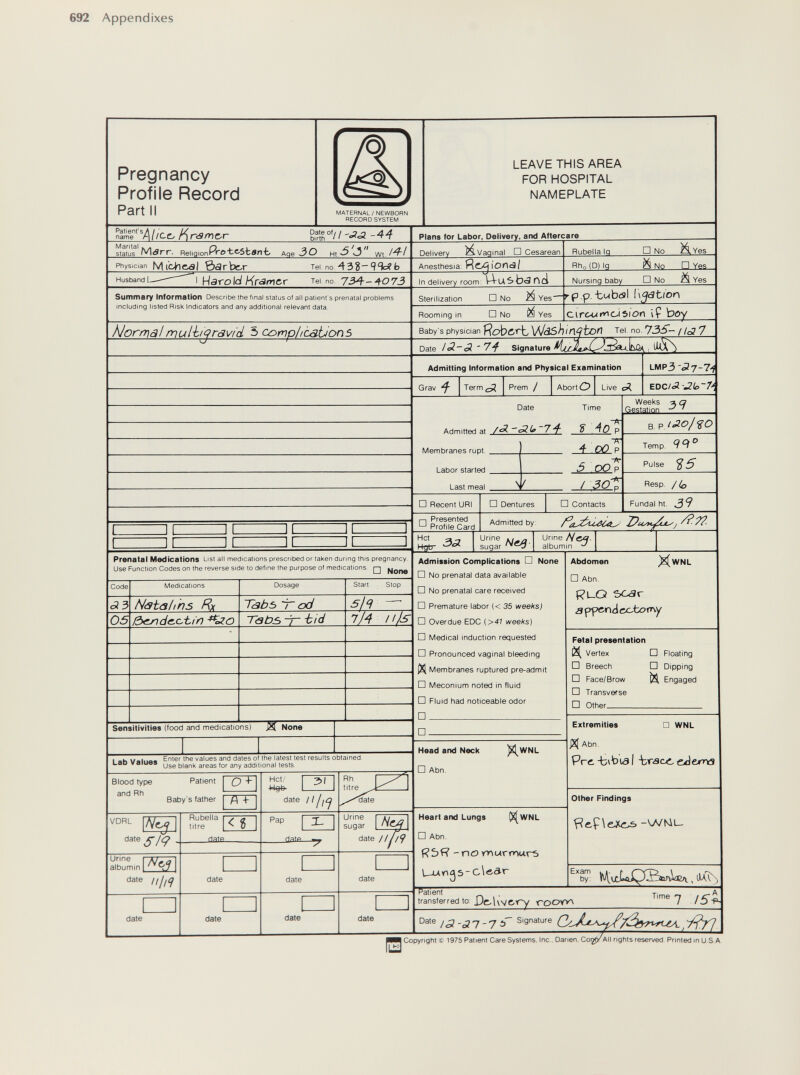 692 Appendixes
Pregnancy
Profile Record
Part II
MATERNAL / NEWBORN
RECORD SYSTEM
LEAVE THIS AREA
FOR HOSPITAL
NAMEPLATE
Patient's name Alice Kramer Date of birth 11-22-44
Marital status Marr. Religion Protestant Age 30 Ht 5'3" Wt 141
Physician Micheal Barber Tel. no. 438-9926
Husband Harold Kramer Tel. no. 734-4073
Summary Information Describe the final status of all patient's prenatal problems
including listed Risk Indicators and any additional relevant data.
Normal multigravid s complications
Prenatal Medications List all medications prescribed or taken during this pregnancy
Use Function Codes on the reverse side to define the purpose of medications. None
Code Medications Dosage Start Stop
23 Natalins Rx Tabs T od 5/9 —
05 Bendectin #20 Tabs T tid 7/4 11/5
Sensitivities (food and medications) None
Lab Values Enter the values and dates of the latest test results obtained.
Use blank areas for any additional tests.
Blood type and Rh Patient O + Hct/Hgb 31 Rh titre
Baby's father A + date 11/19 date
VDRL Neg Rubella titre < 8 Pap I Urine sugar Neg
date 5/9 date date 7 date 11/19
Urine albumin Neg
date 11/19 date date date
date date date date
Plans for Labor, Delivery, and Aftercare
Delivery Vaginal Cesarean Rubella Ig No Yes
Anesthesia Regional Rho (D) Ig No Yes
In delivery room Husband Nursing baby No Yes
Sterilization No Yes p.p. tubal ligation
Rooming in No Yes Circumcision if boy
Baby's physician Robert Washington Tel. no. 735-1127
Date 12-2-74 Signature
Admitting Information and Physical Examination LMP 3-27-74
Grav 4 Term 2 Prem 1 Abort O Live 2 EDC 12-26-74
Date Time Weeks Gestation 39
Admitted at 12-26-74 8 40 A P B.P. 120/80
Membranes rupt. 4 00 A P Temp. 99°
Labor started 5 00 A P Pulse 85
Last meal 1 30 A P Resp. 16
Recent URI Dentures Contacts Fundal ht. 39
Presented Profile Card Admitted by Patricia R.N.
Hct Hgb 32 Urine sugar Neg. Urine albumin Neg.
Admission Complications None
No prenatal data available
No prenatal care received
Premature labor (< 35 weeks)
Overdue EDC (>41 weeks)
Medical induction requested
Pronounced vaginal bleeding
Membranes ruptured pre-admit
Meconium noted in fluid
Fluid had noticeable odor
Abdomen WNL
Abn.
RLQ scar
appendectomy
Fetal presentation
Vertex Floating
Breech Dipping
Face/Brow Engaged
Transverse
Other
Head and Neck WNL
Abn.
Extremities WNL
Abn.
Pre tibial trace edema
Heart and Lungs WNL
Abn.
RSR - no murmurs
Lungs - clear
Other Findings
Reflexes - WNL
Exam by:
Patient transferred to: Delivery room Time 7 15 A P
Date 12-27-75 Signature
Copyright © 1975 Patient Care Systems, Inc., Darien, Conn. All rights reserved. Printed in U.S.A.